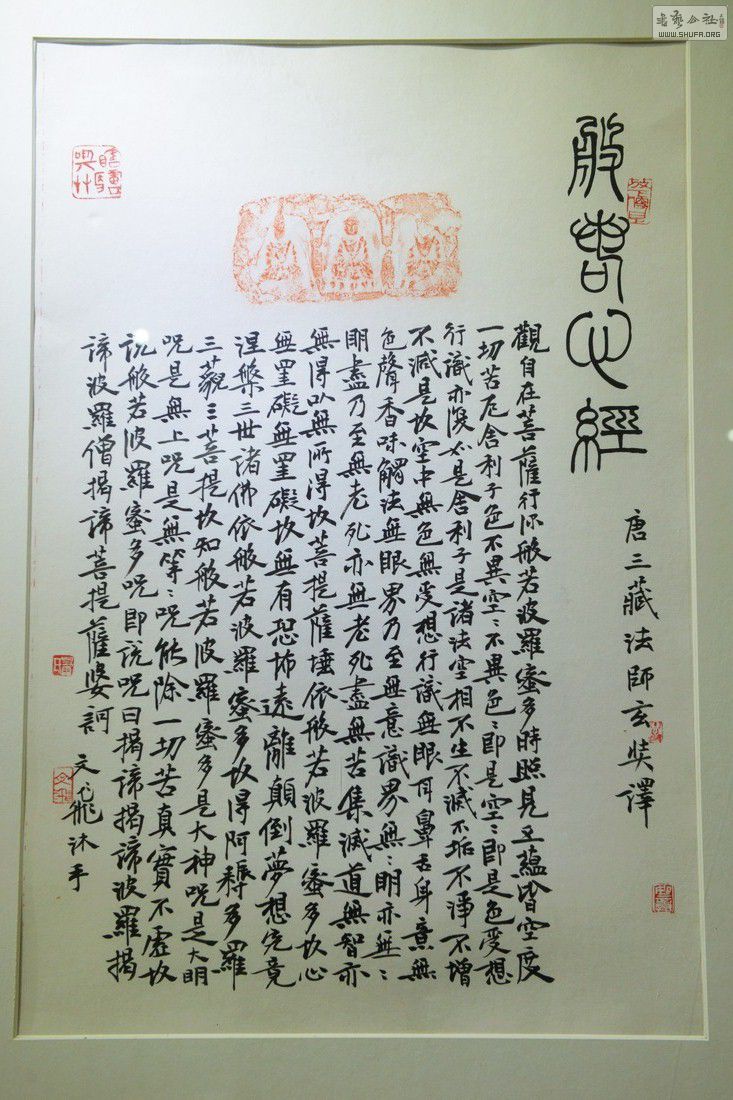 般若心經
唐三藏法師玄奘譯
觀自在菩薩行深般若波羅蜜多時照見五蘊皆空度
一切苦厄舍利子色不異空〻不異色〻即是空〻即是色受想
行識亦復如是舍利子是諸法空相不生不滅不垢不淨不增
不減是故空中無色無受想行識無眼耳鼻舌身意無
色聲香味觸法無眼界乃至無意識界無〻明亦無〻
明盡乃至無老死亦無老死盡無苦集滅道無智亦
無得以無所得故菩提薩埵依般若波羅蜜多故心
無罣礙無罣礙故無有恐怖遠離顛倒夢想究竟
涅槃三世諸佛依般若波羅蜜多故得阿耨多羅
三藐三菩提故知般若波羅蜜多是大神咒是大明
咒是無上咒是無等〻咒能除一切苦真實不虛故
說般若波羅蜜多咒即說咒曰揭諦揭諦波羅揭
諦波羅僧揭諦菩提薩婆訶 文飛沐手
書藝公社
WWW.SHUFA.ORG